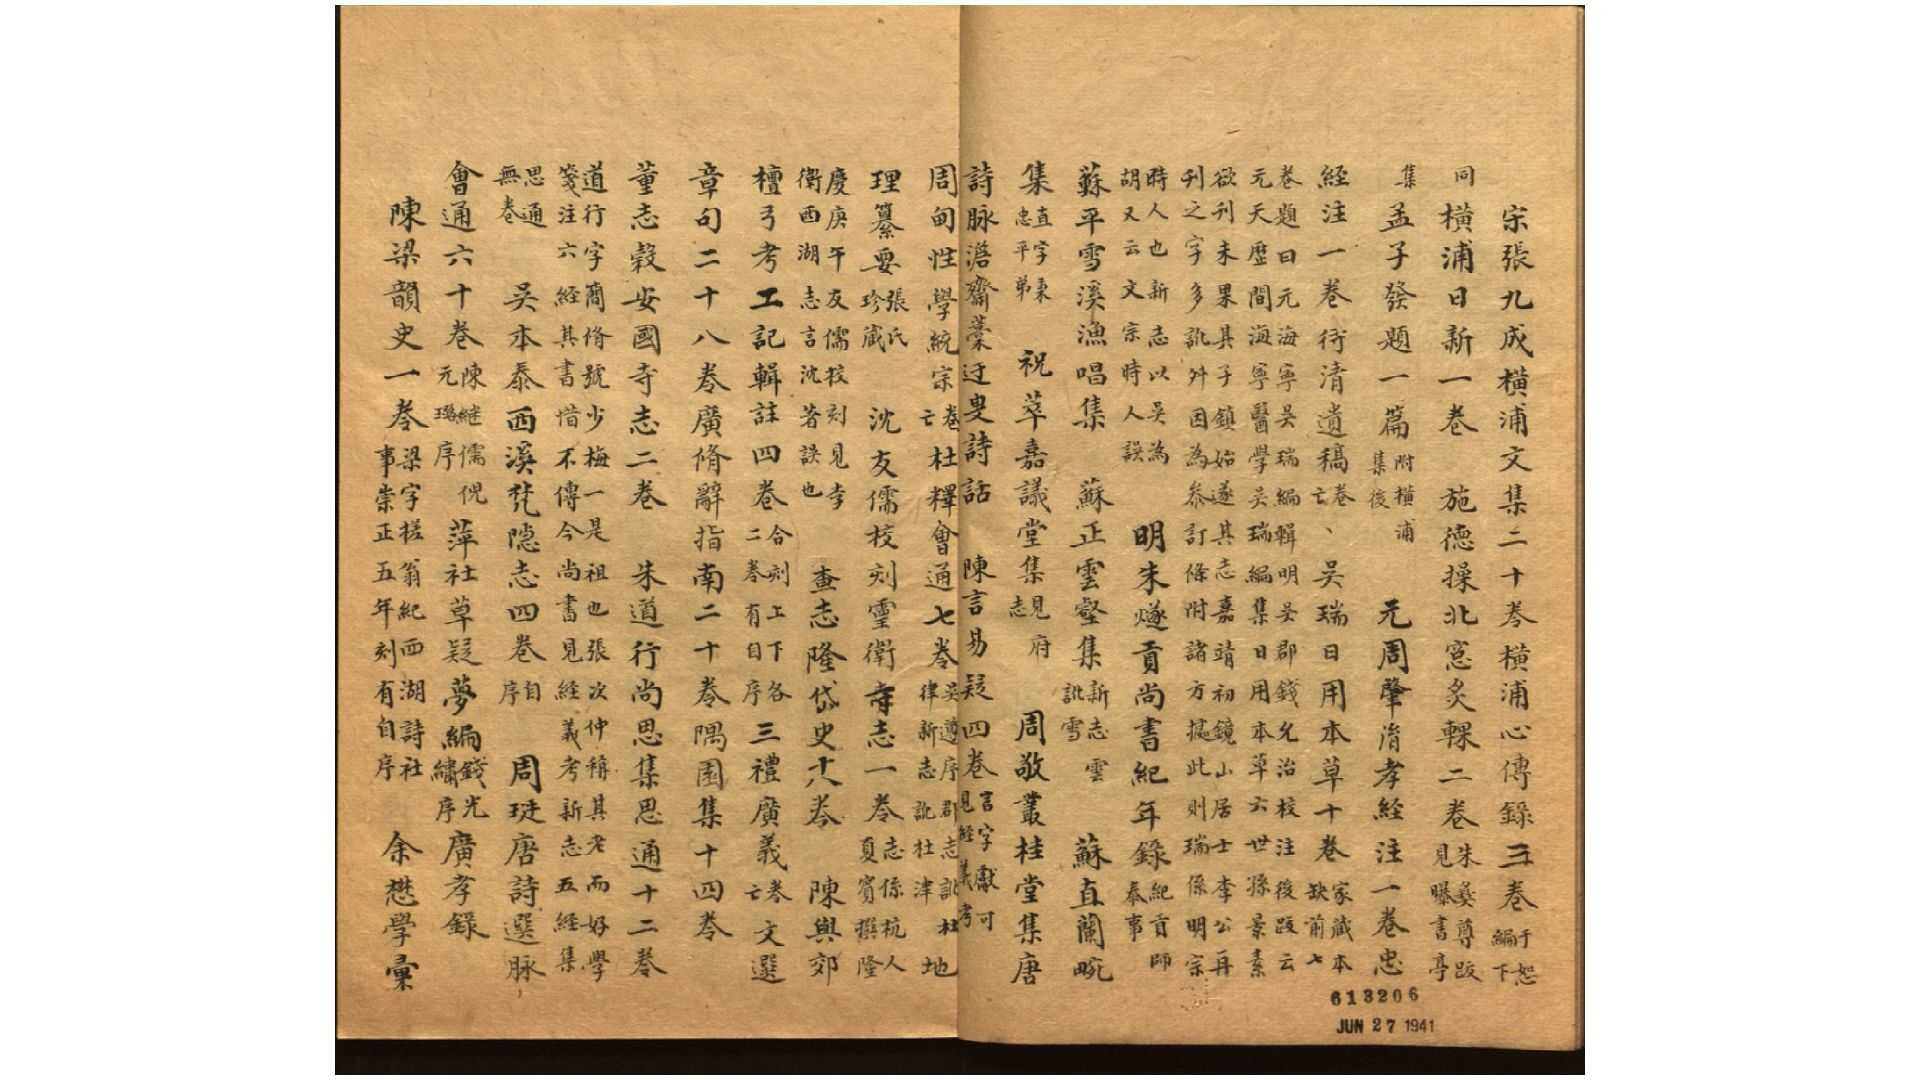 宋張九成橫浦文集二十卷橫浦心傳錄三卷于恕編下
同橫浦日新一卷 施德操北窓炙輠二卷朱彝尊跋見曝書亭
集 孟子發題一篇附橫浦集後 元周肇孝經注一卷忠
經注一卷 衍清遺稿卷亡、吳瑞日用本草十卷家藏本缺前七
卷題曰元海寧吳瑞編輯明吳郡錢允治校注後跋云
元天歷間海寧醫學吳瑞編集日用本草六世孫景素
欲刊未果其子鎮始遂其志嘉靖初鏡山居士李公再
刊之字多訛舛因為參訂條附諸方據此則瑞係明宗
時人也新志以吳為胡又云文宗時人誤 明朱燧貢尚書紀年錄紀貢師泰事
蘇平雪溪漁唱集 蘇正雲壑集新志雲訛雪 蘇直蘭畹
集直字秉忠平弟 祝萃嘉議堂集見府志 周敬叢桂堂集唐
詩脉澹齋藁迂叟詩話 陳言易疑四卷言字獻可見經義考
周甸性學統宗卷亡杜釋會通七卷吳遵序郡志訛杜律新志訛杜津 地
理纂要張氏珍藏 沈友儒校刻靈衛寺志一卷志係杭人夏賓撰隆
慶庚午友儒校刻見寺衛西湖志言沈著誤也 查志隆岱史十八卷 陳與郊
檀弓考工記輯註四卷合刻上下各二卷有自序三禮廣義卷亡文選
章句二十八卷廣脩辭指南二十卷隅園集十四卷
董志毅安國寺志二卷 朱道行尚思集思通十二卷
道行字簡脩號少梅一是祖也張次仲稱其老而好學
箋注六經其書惜不傳今尚書見經義考新志五經集
思通無卷 吳本泰西溪梵隱志四卷自序 周珽唐詩選脉
會通六十卷陳継儒倪元璐序 萍社草疑夢編錢光繡序廣孝錄
陳梁韻史一卷梁字槎翁紀西湖詩社事崇正五年刻有自序 余懋學彙
613206
JUN 27 1941